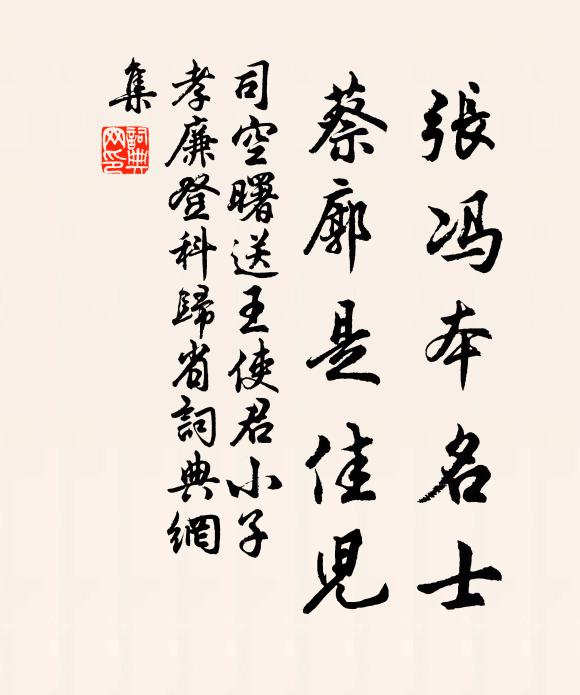 張冯本名士
蔡廓是佳兒
司空曙送王使君小子
孝廉登科歸省詞典網
集
詞典
网印